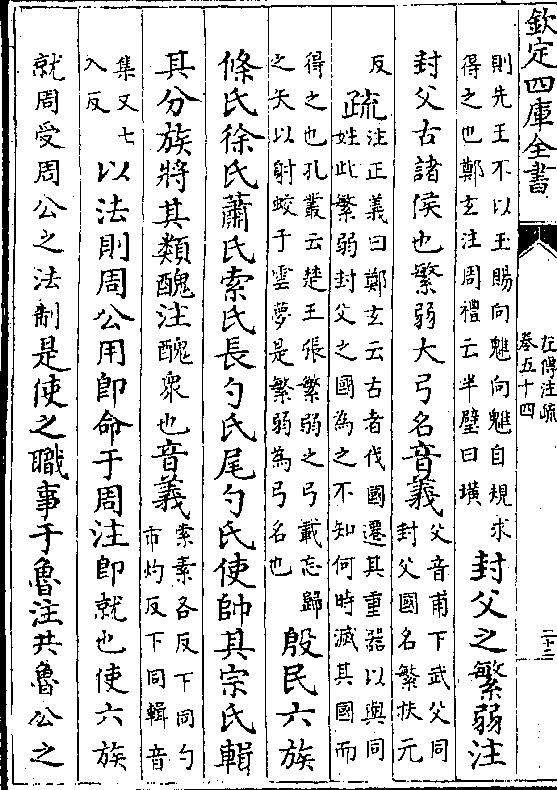 欽定四庫全書
左傳注疏
卷五十四
二十三
則先王不以玉賜向魋向魋自規求
得之也鄭玄注周禮云半璧曰璜
封父之繁弱注
封父古諸侯也繁弱大弓名音義
父音甫下武父同
封父國名繁扶元
反
疏
注正義曰鄭玄云古者伐國遷其重器以與同
姓此繁弱封父之國為之不知何時滅其國而
得之也孔叢云楚王張繁弱之弓載忘歸
之矢以射蛟于雲夢是繁弱為弓名也
殷民六族
條氏徐氏蕭氏索氏長勺氏尾勺氏使帥其宗氏輯
其分族將其類醜注醜衆也音義
索素各反下同勺
市灼反下同輯音
集又七
入反
以法則周公用即命于周注即就也使六族
就周受周公之法制是使之職事于魯注共魯公之